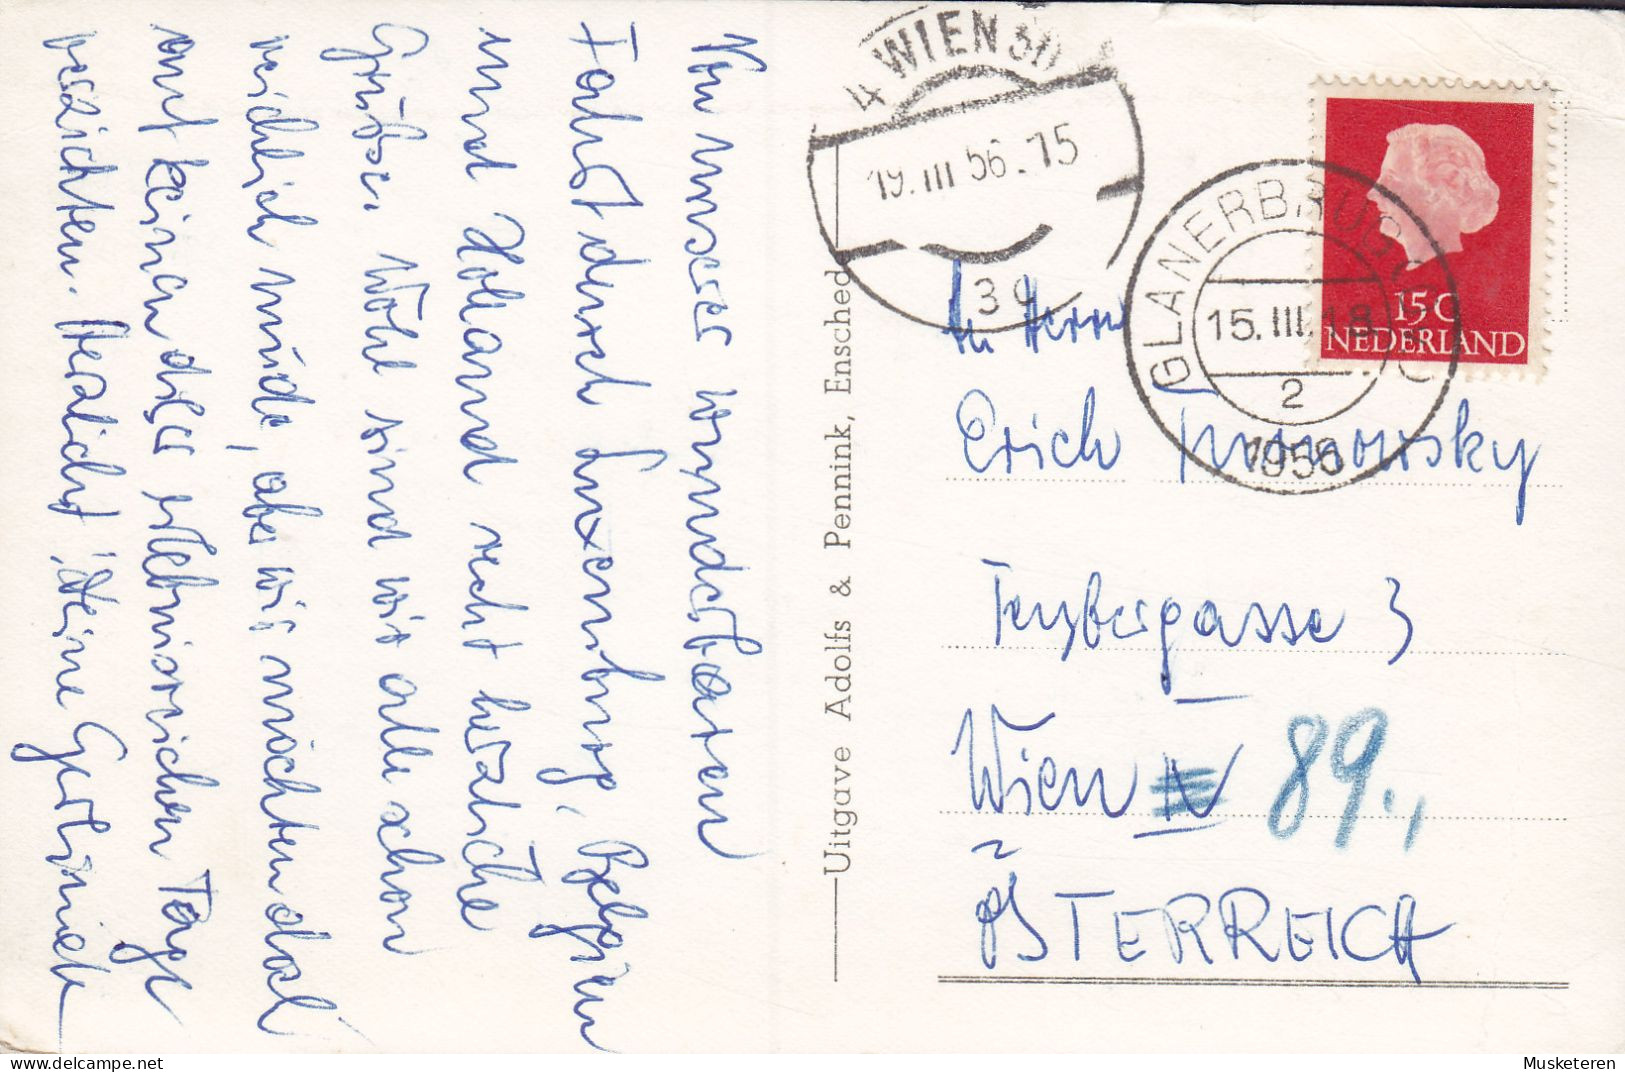 Von unserer wunderbaren
Fahrt durch Luxemburg, Belgien
und Holland recht herzliche
Grüße. Wohl sind wir alle schon
reichlich müde, aber wir möchten doch
auf keinen dieser erlebnisreichen Tage
verzichten. Herzlichst, Deine
4 WIEN 50
19.III 56.15
3c
GLANERBRUG
15.III.18
2
1956
15C
NEDERLAND
An Herrn
Erich
3
Wien IV 89.,
ÖSTERREICH
Uitgave Adolfs & Pennink, Ensched
Musketeren